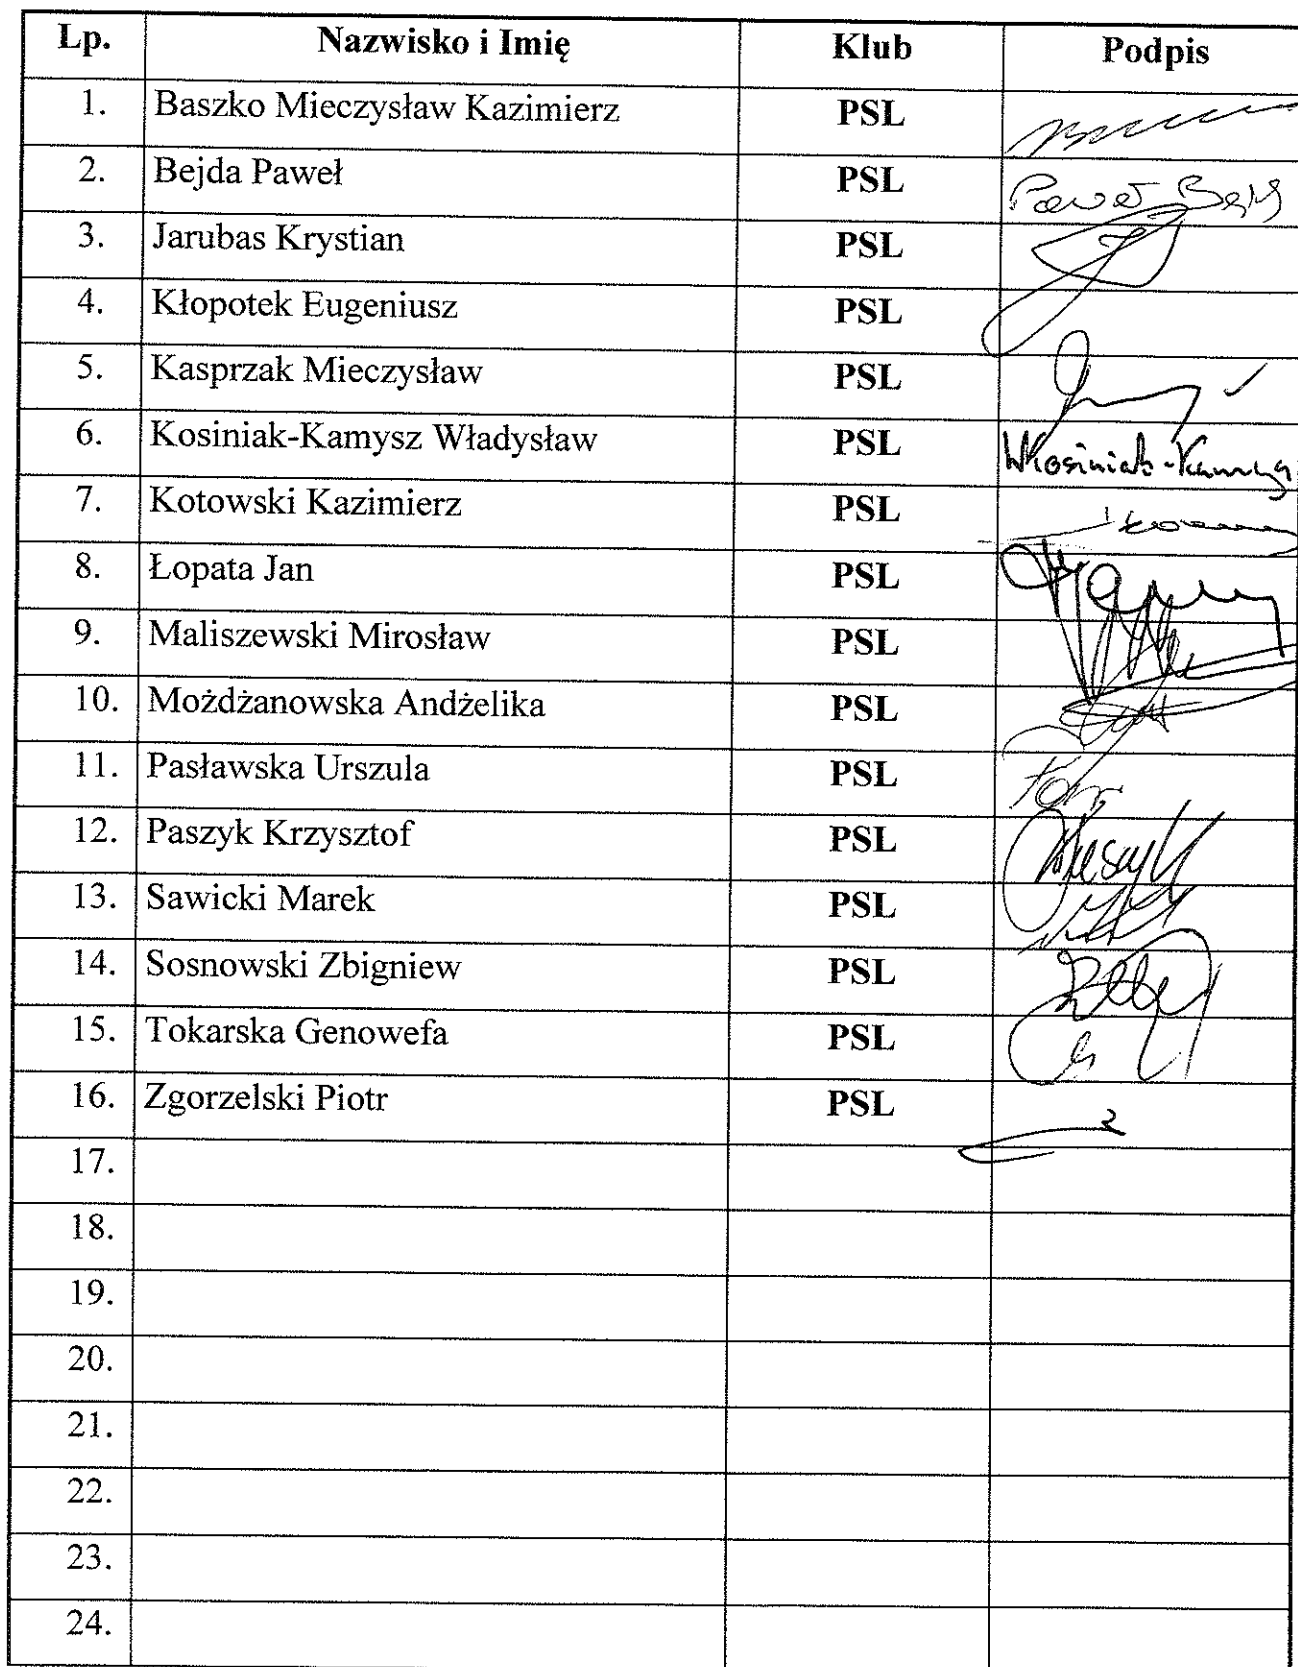 Lp. Nazwisko i Imię Klub Podpis
1. Baszko Mieczysław Kazimierz PSL
2. Bejda Paweł PSL Paweł Bejda
3. Jarubas Krystian PSL
4. Kłopotek Eugeniusz PSL
5. Kasprzak Mieczysław PSL
6. Kosiniak-Kamysz Władysław PSL WKosiniak-Kamysz
7. Kotowski Kazimierz PSL
8. Łopata Jan PSL
9. Maliszewski Mirosław PSL
10. Możdżanowska Andżelika PSL
11. Pasławska Urszula PSL
12. Paszyk Krzysztof PSL
13. Sawicki Marek PSL
14. Sosnowski Zbigniew PSL
15. Tokarska Genowefa PSL
16. Zgorzelski Piotr PSL
17.
18.
19.
20.
21.
22.
23.
24.